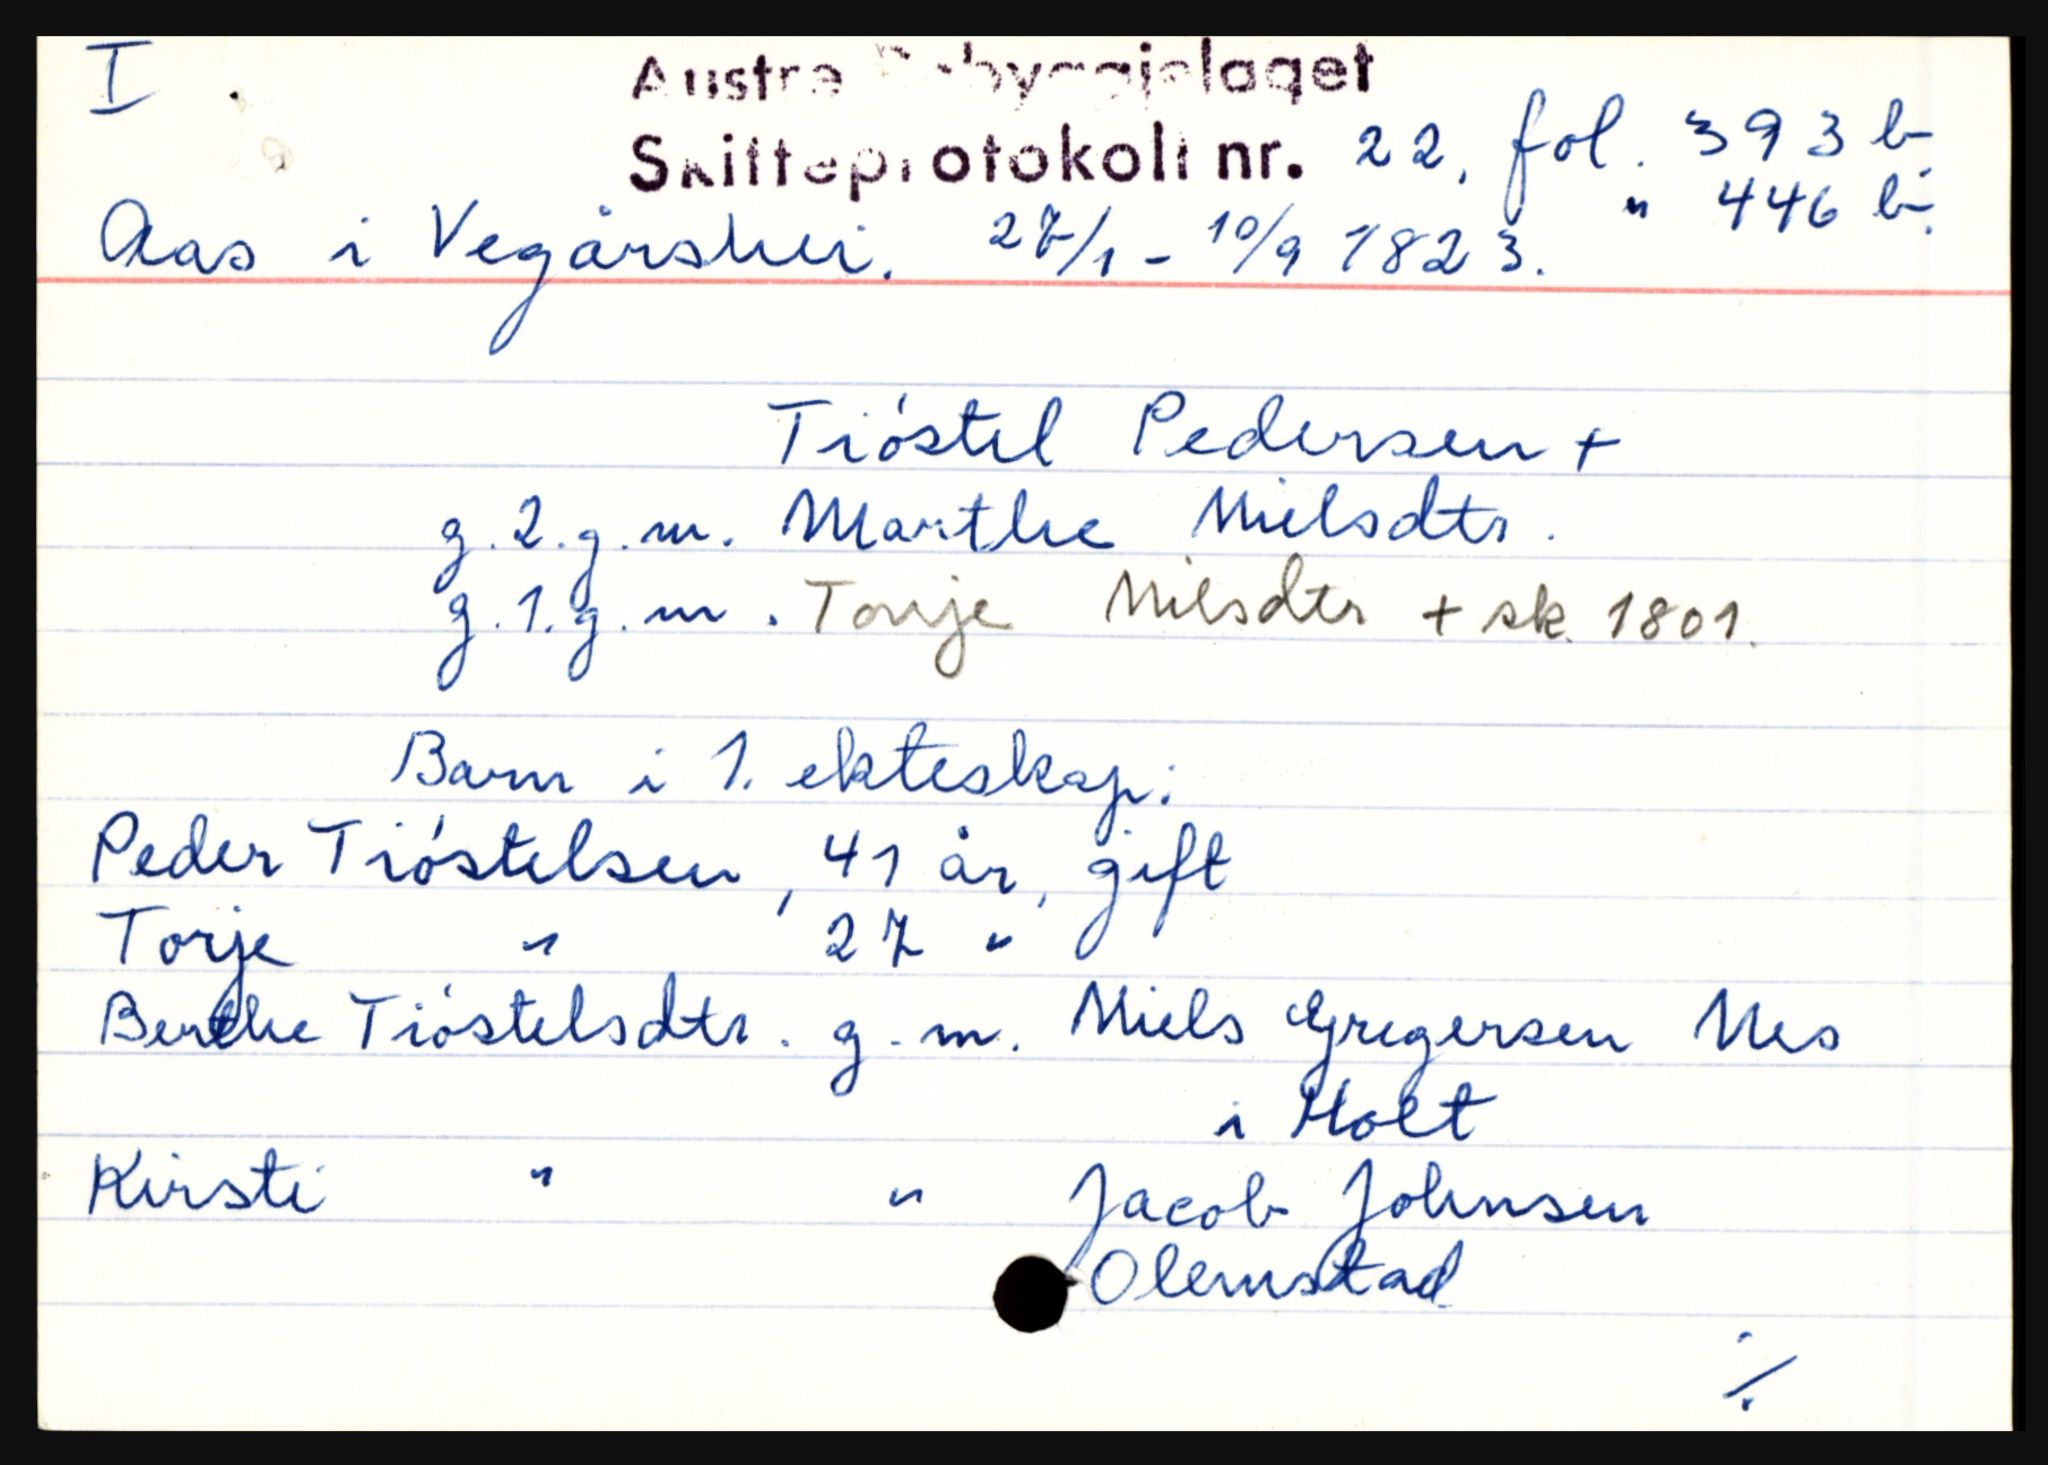 I
Austre Robyggjelaget
Skifteprotokoll nr. 22, fol. 393 b.
" 446 b.
Aas i Vegårshei. 27/1 - 10/9 1823.
Tióstel Pedersen +
g. 2. g. m. Marthe Nielsdtr.
g. 1. g. m. Torije Nilsdtr + sk. 1801.
Barn i 1. ekteskap:
Peder Tióstelsen, 41 år, gift
Torje " 27 "
Berthe Tióstelsdtr. g. m. Niels Gregersen Nes
i Holt
Kirsti " " Jacob Johnsen
Olemstad
./.